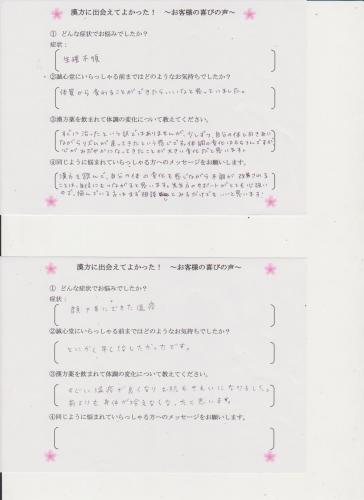 漢方に出会えてよかった！　～お客様の喜びの声～
① どんな症状でお悩みでしたか？
症状：
生理不順
②誠心堂にいらっしゃる前まではどのようなお気持ちでしたか？
体質から変わることができたらいいなと思っていました。
③漢方薬を飲まれて体調の変化について教えてください。
すぐに治ったという訳ではありませんが、少しずつ、自分の体と向きあい
ながらリズムが戻ってきたという感じです。体調の変化はもちろんですが
心がおだやかになってきたことが大きい変化だと思います。
④同じように悩まれていらっしゃる方へのメッセージをお願いします。
漢方を飲んで、自分の体の変化を感じながら不調が改善される
ことは、自信にもつながると思います。先生方のサポートがとても心強い
ので、悩んでいる方はまず相談してみるだけでもいいと思います！
漢方に出会えてよかった！　～お客様の喜びの声～
① どんな症状でお悩みでしたか？
症状：
顔や耳にできた湿疹
②誠心堂にいらっしゃる前まではどのようなお気持ちでしたか？
とにかく早く治したかったです。
③漢方薬を飲まれて体調の変化について教えてください。
湿疹が良くなり お肌もきれいになりました。
前よりも身体が冷えなくなったと思います。
④同じように悩まれていらっしゃる方へのメッセージをお願いします。